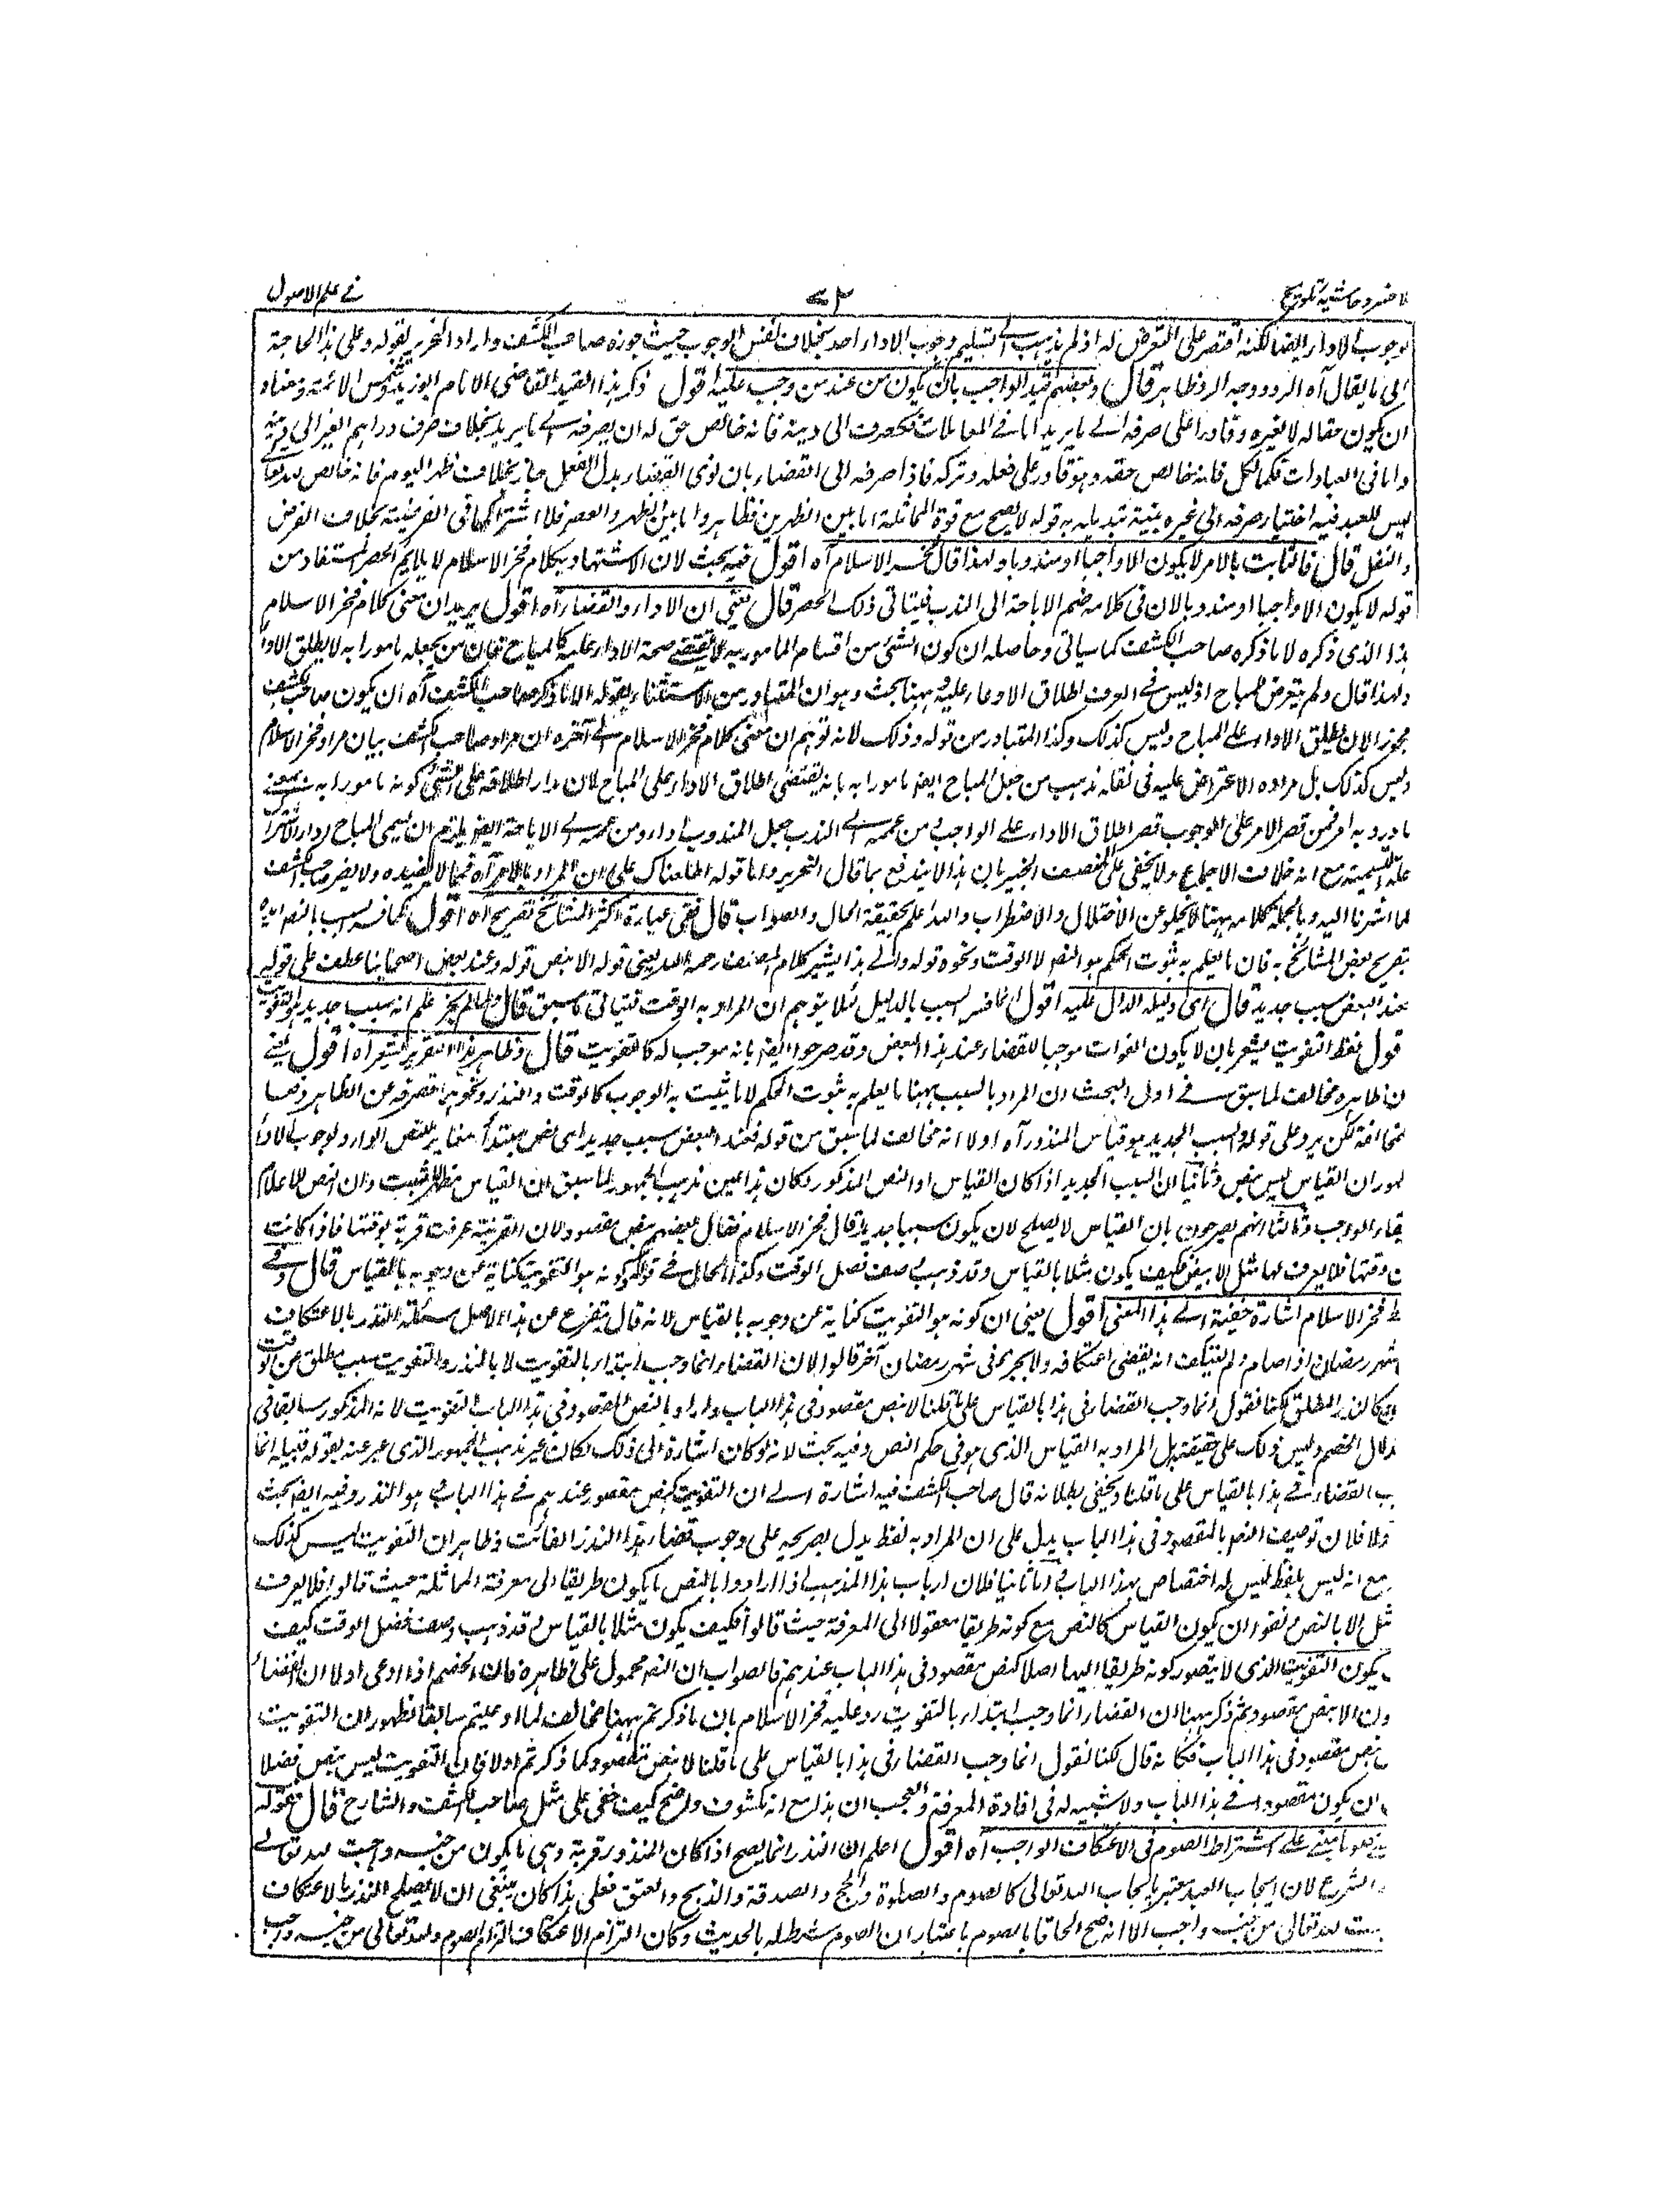 لا خسرو حاشية تلويح
في علم الاصول
لوجوب الاداء ايضا لكنه اقتصر على التعرض له اذ لم يذهب الى تسليم وجوب الاداء احد بخلاف نفس الوجوب حيث جوزه صاحب الكشف واراد النحرير بقوله وعلى هذا لا حاجة
الى ما يقال آه الرد ووجه الرد ظاهر قال وبعضهم قيد الواجب بان يكون من عند من وجب عليه اقول ذكر هذا القيد القاضى الامام ابو زيد وشمس الائمة ومعناه
ان يكون حقا له لا لغيره وقادرا على صرفه الى ما يريد اما فى المعاملات فكصرف الى دينه فانه خالص حق له ان يصرفه الى ما يريد بخلاف صرف دراهم الغير الى دينه
واما فى العبادات فكالنفل فانه خالص حقه وهو قادر على فعله وتركه فاذا صرفه الى القضاء بان نوى القضاء بدل النفل جاز بخلاف ظهر اليوم فانه خالص لله تعالى
ليس للعبد فيه اختيار صرفه الى غيره بنية تبديله به قوله لا يصح مع قوة المماثلة اما بين الظهرين فظاهر واما بين الظهر والعصر فلاشتراكهما فى الفرضية بخلاف الفرض
والنفل قال فالثابت بالامر لا يكون الا واجبا او مندوبا ولهذا قال فخر الاسلام آه اقول فيه بحث لان الاستشهاد بكلام فخر الاسلام لا يلايم الحصر المستفاد من
قوله لا يكون الا واجبا او مندوبا لان فى كلامه ضم الاباحة الى الندب فينافى ذلك الحصر قال يعنى ان الاداء والقضاء آه اقول يريد ان معنى كلام فخر الاسلام
هذا الذى ذكره لا ما ذكره صاحب الكشف كما سياتى وحاصله ان كون الشئ من اقسام المامور به لا يقتضى صحة الاداء عليه كالمباح فان من يجعله مامورا به لا يطلق الاداء
ولهذا قال ولم يتعرض للمباح اذ ليس فى العرف اطلاق الاداء عليه وههنا بحث وهو ان المتبادر من الاستثناء بقوله الا ما ذكره صاحب الكشف آه ان يكون صاحب الكشف
مجوزا لان يطلق الاداء على المباح وليس كذلك وكذا المتبادر من قوله وذلك لانه توهم ان معنى كلام فخر الاسلام الى آخره ان مراد صاحب الكشف بيان مراد فخر الاسلام
وليس كذلك بل مراده الاعتراض عليه فى نقله مذهب من جعل المباح ايضا مامورا به بانه يقتضى اطلاق الاداء على المباح لان مدار اطلاقه على الشئ كونه مامورا به بمعنى
ما ورد به امر فمن قصر الامر على الوجوب قصر اطلاق الاداء على الواجب ومن عممه الى الندب جعل المندوب اداء ومن عممه الى الاباحة ايضا يلزم ان يسمى المباح اداء
هذه التسمية مع انه خلاف الاجماع ولا يخفى على المنصف الخبير بان هذا لا يندفع بما قال النحرير واما قوله اطلعناك على ان المراد بالامر آه فمما لا يفيده ولا يضر صاحب الكشف
لما اشرنا اليه وبالجملة كلامه ههنا لا يخلو عن الاختلال والاضطراب والله اعلم بحقيقة الحال والصواب قال ففى عبارة اكثر المشائخ تصريح آه اقول كما فسر السبب بالنص ايده
بتصريح بعض المشائخ به فان ما يعلم به ثبوت الحكم هو النص لا الوقت ونحوه قوله والى هذا يشير كلام المصنف رحمه الله يعنى قوله الا بنص قوله وعند بعض اصحابنا عطف على قوله
عند البعض بسبب جديد قال اى دليله الدال عليه اقول انما فسر السبب بالدليل لئلا يتوهم ان المراد به الوقت فينافى ما سبق قال ولما لم يجز علم انه سبب جديد وهو التفويت
قول لفظ التفويت يشعر بان لا يكون الفوات موجبا للقضاء عند هذا البعض وقد صرحوا ايضا بانه موجب له كالتفويت قال وظاهر هذا التقرير يشعر آه اقول يعنى
ن ظاهره مخالف لما سبق فى اول البحث ان المراد بالسبب ههنا ما يعلم به ثبوت الحكم لا ما يثبت به الوجوب كالوقت والنذر ونحوهما فصرفه عن الظاهر دفعا
لمخالفة لكن يرد على قوله والسبب الجديد هو قياس المنذور آه اولا انه مخالف لما سبق من قوله فعند البعض بسبب جديد اى نص مبتدأ مغاير للنص الوارد لوجوب الاداء
لهور ان القياس ليس بنص وثانيا ان السبب الجديد اذا كان القياس او النص المذكور لكان هذا عين مذهب الجمهور لما سبق ان القياس مظهر لا مثبت وان النص للاعلام
بقاء الواجب وثالثا انهم يصرحون بان القياس لا يصلح لان يكون سببا جديدا قال فخر الاسلام فقال بعضهم بنص مقصود لان القربة عرفت قربة بوقتها فاذا كانت
ن وقتها فلا يعرف لها مثل الا بنص فكيف يكون مثلا بالقياس وقد ذهب وصف فضل الوقت وكذا الحال فى قوله كونه هو التفويت كناية عن وجوبه بالقياس قال وفى
ظ فخر الاسلام اشارة خفية الى هذا المعنى اقول يعنى ان كونه هو التفويت كناية عن وجوبه بالقياس لانه قال يتفرع عن هذا الاصل مسئلة النذر بالاعتكاف
شهر رمضان اذا صام ولم يعتكف انه يقضى اعتكافه ولا يجزيه فى شهر رمضان آخر قالوا لان القضاء انما وجب ابتداء بالتفويت لا بالنذر والتفويت سبب مطلق عن الوقت
كالنذر المطلق لكنا نقول انما وجب القضاء فى هذا بالقياس على ما قلنا لا بنص مقصود فى هذا الباب واراد بالنص المقصود فى هذا الباب التفويت لانه المذكور سابقا فى
دلال الخصم وليس ذلك على حقيقته بل المراد به القياس الذى هو فى حكم النص وفيه بحث لانه لو كان اشارة الى ذلك لكان غير مذهب الجمهور الذى عبر عنه بقوله قبيله انما
ب القضاء فى هذا بالقياس على ما قلنا ويخفى بطلانه قال صاحب الكشف فيه اشارة الى ان التفويت كنص مقصود عندهم فى هذا الباب هو النذر وفيه ايضا بحث
ولا فلان توصيف النص بالمقصود فى هذا الباب يدل على ان المراد به لفظ يدل بصريحه على وجوب قضاء هذا النذر الفائت وظاهر ان التفويت ليس كذلك
مع انه ليس بلفظ ليس له اختصاص بهذا الباب واما ثانيا فلان ارباب هذا المذهب اذا ارادوا بالنص ما يكون طريقا الى معرفة المماثلة حيث قالوا فلا يعرف
مثل الا بالنص نفوا ان يكون القياس كالنص مع كونه طريقا معقولا الى المعرفة حيث قالوا فكيف يكون مثلا بالقياس وقد ذهب وصف فضل الوقت كيف
يكون التفويت الذى لا يتصور كونه طريقا اليها اصلا كنص مقصود فى هذا الباب عندهم فالصواب ان النص محمول على ظاهره فان الخصم اذا ادعى اولا ان القضاء
ون الا بنص مقصود ثم ذكر ههنا ان القضاء انما وجب ابتداء بالتفويت رد عليه فخر الاسلام بان ما ذكرتم ههنا مخالف لما ادعيتم سابقا لظهور ان التفويت
نص مقصود فى هذا الباب فكانه قال لكنا نقول انما وجب القضاء فى هذا بالقياس على ما قلنا لا بنص مقصود كما ذكرتم اولا فان التفويت ليس بنص فضلا
ان يكون مقصودا فى هذا الباب ولا شبيه له فى افادة المعرفة والعجب ان هذا مع انه مكشوف واضح كيف خفى على مثل صاحب الكشف والشارح قال قوله
مبنى على اشتراط الصوم فى الاعتكاف الواجب آه اقول اعلم ان النذر انما يصح اذا كان المنذور قربة وهى ما يكون من جنسه واجب لله تعالى
الشرع لان ايجاب العبد معتبر بايجاب الله تعالى كالصوم والصلوة والحج والصدقة والذبح والعتق فعلى هذا كان ينبغى ان لا يصح النذر بالاعتكاف
لله تعالى من جنسه واجب الا انه صح الحاقا بالصوم باعتبار ان الصوم شرط له بالحديث وكان التزام الاعتكاف التزام الصوم ولله تعالى من جنسه واجب